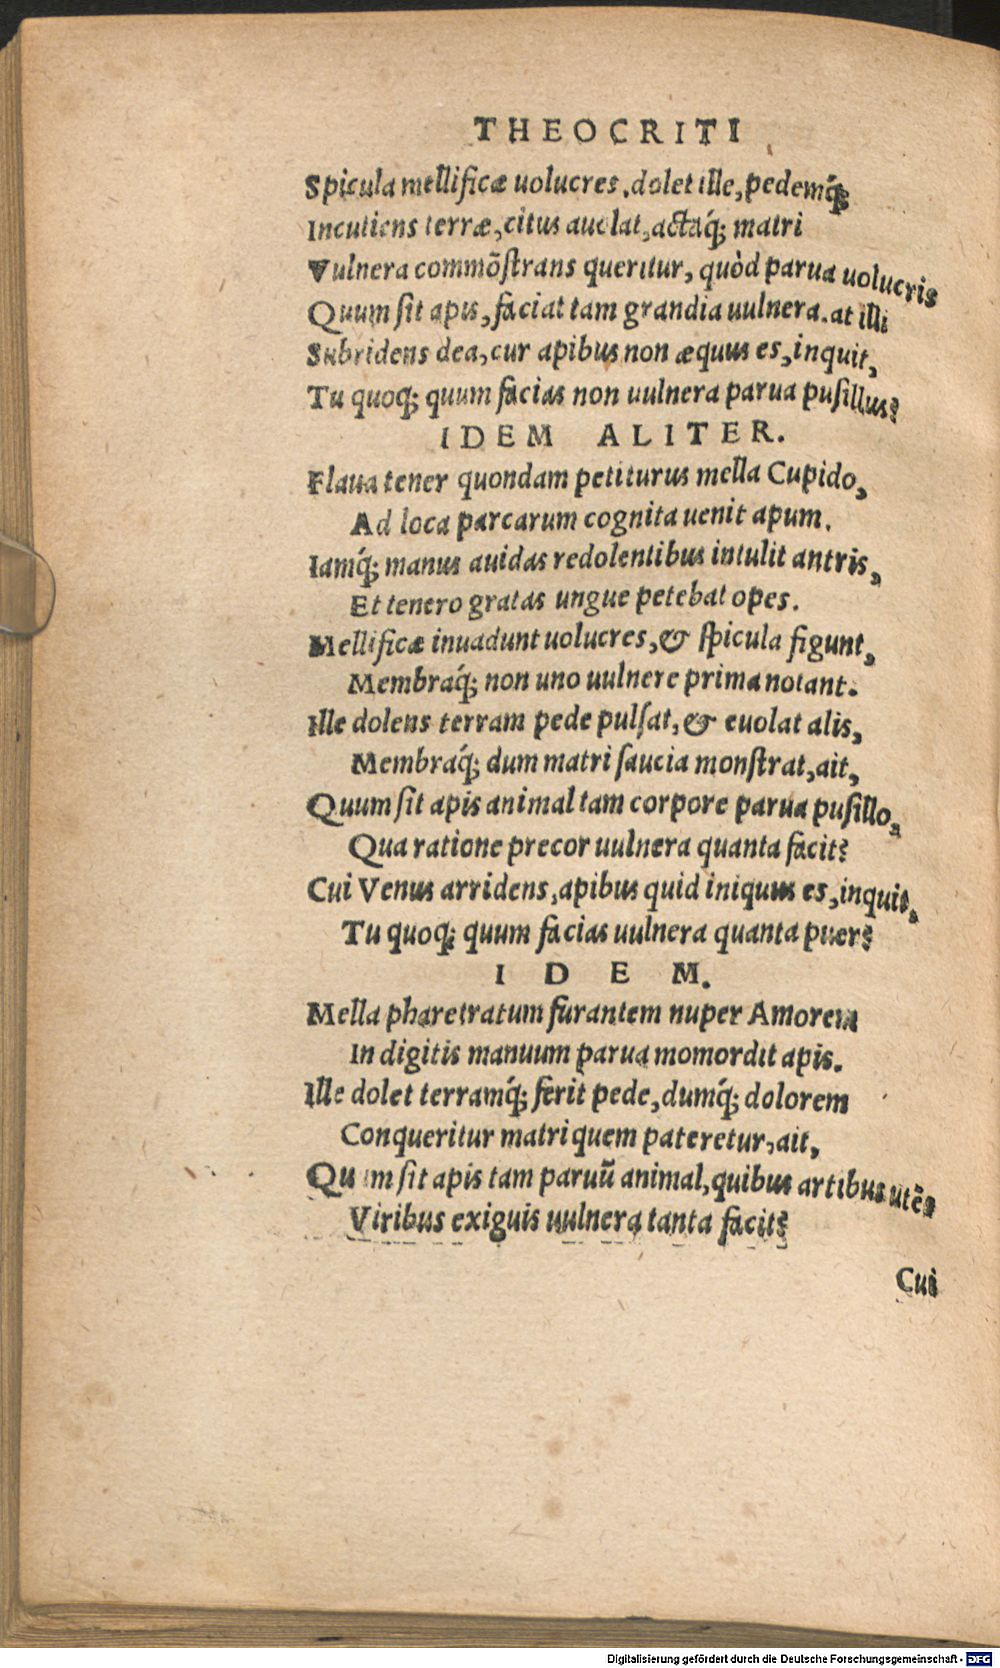 THEOCRITI
Spicula mellificæ uolucres, dolet ille, pedemq́;
Incutiens terræ, citus auolat, actaq́; matri
Vulnera commõstrans queritur, quòd parua uolucris
Quum sit apis, faciat tam grandia uulnera. at illi
Subridens dea, cur apibus non æquus es, inquit,
Tu quoq; quum facias non uulnera parua pusillus?
IDEM ALITER.
Flaua tener quondam petiturus mella Cupido,
Ad loca parcarum cognita uenit apum.
Iamq́; manus auidas redolentibus intulit antris,
Et tenero gratas ungue petebat opes.
Mellificæ inuadunt uolucres, & spicula figunt,
Membraq́; non uno uulnere prima notant.
Ille dolens terram pede pulsat, & euolat alis,
Membraq́; dum matri saucia monstrat, ait,
Quum sit apis animal tam corpore parua pusillo,
Qua ratione precor uulnera quanta facit?
Cui Venus arridens, apibus quid iniquus es, inquit,
Tu quoq; quum facias uulnera quanta puer?
IDEM.
Mella pharetratum furantem nuper Amorem
In digitis manuum parua momordit apis.
Ille dolet terramq́; ferit pede, dumq́; dolorem
Conqueritur matri quem pateretur, ait,
Quum sit apis tam paruũ animal, quibus artibus utẽs
Viribus exiguis uulnera tanta facit?
Cui
Digitalisierung gefördert durch die Deutsche Forschungsgemeinschaft - DFG